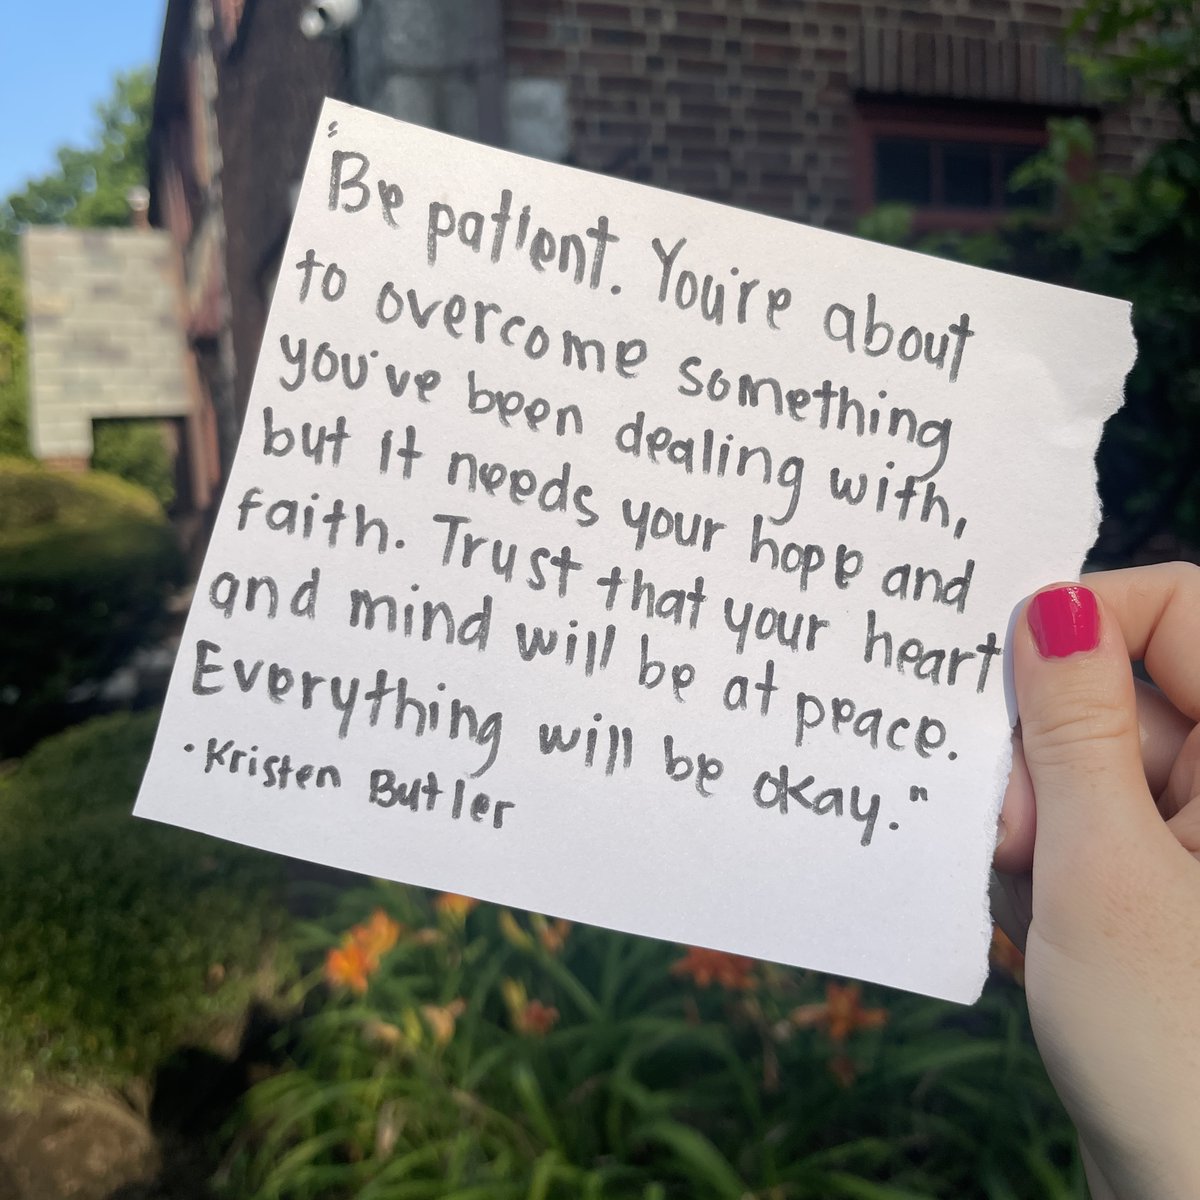 "Be patient. You're about
to overcome something
you've been dealing with,
but it needs your hope and
faith. Trust that your heart
and mind will be at peace.
Everything will be okay."
·Kristen Butler